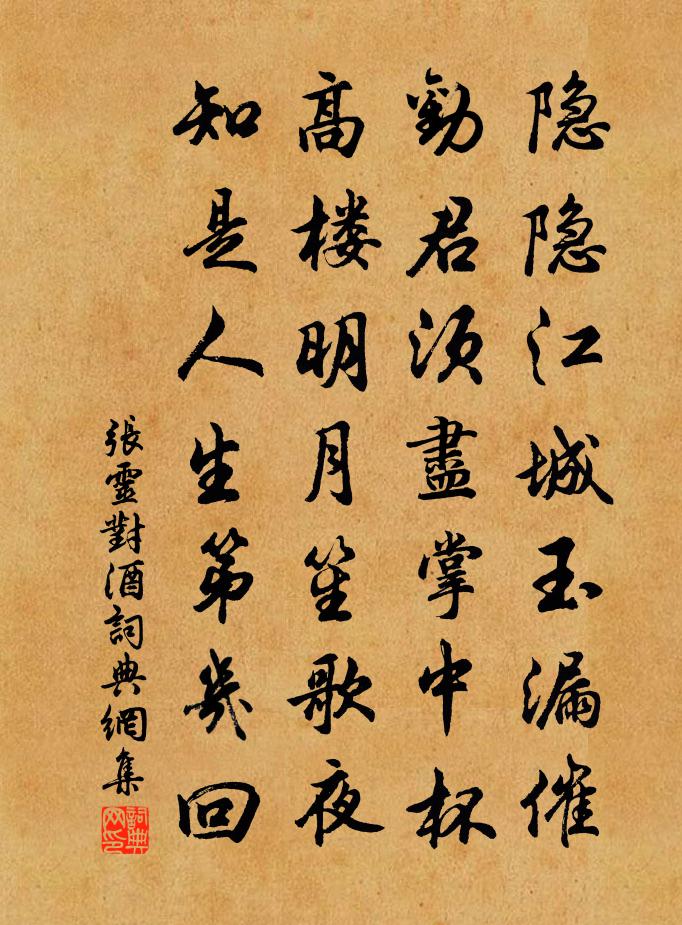 隐隐江城玉漏催
勸君须盡掌中杯
高楼明月笙歌夜
知是人生第幾回
張靈對酒詞典網集
詞典网印